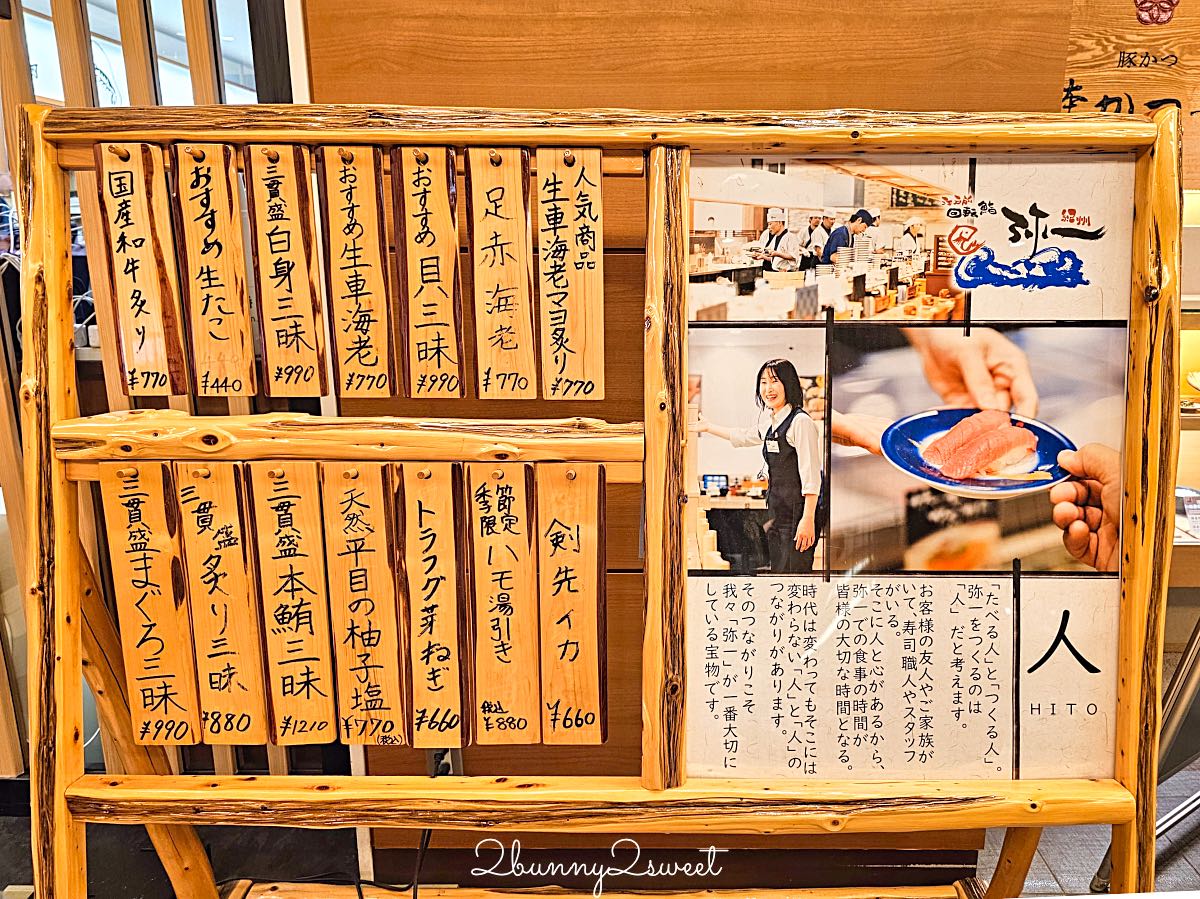 豚かつ
人気商品
生車海老マヨ炙り
¥770
足赤海老
¥770
おすすめ貝三昧
¥990
おすすめ生車海老
¥770
三貫盛白身三昧
¥990
おすすめ生たこ
¥440
国産和牛炙り
¥770
剣先イカ
¥660
季節限定
ハモ湯引き
税込
¥880
トラフグ芽ねぎ
¥660
天然平目の柚子塩
¥770
(税込)
三貫盛本鮪三昧
¥1210
三貫盛炙り三昧
¥880
三貫盛まぐろ三昧
¥990
江戸前
回転鮨
弥一
紀州
人
HITO
「たべる人」と「つくる人」。
弥一をつくるのは
「人」だと考えます。
お客様の友人やご家族が
いて、寿司職人やスタッフ
がいる。
そこに人と心があるから、
弥一での食事の時間が
皆様の大切な時間となる。
時代は変わってもそこには
変わらない「人」と「人」の
つながりがあります。
そのつながりこそ
我々「弥一」が一番大切に
している宝物です。
2bunny2sweet